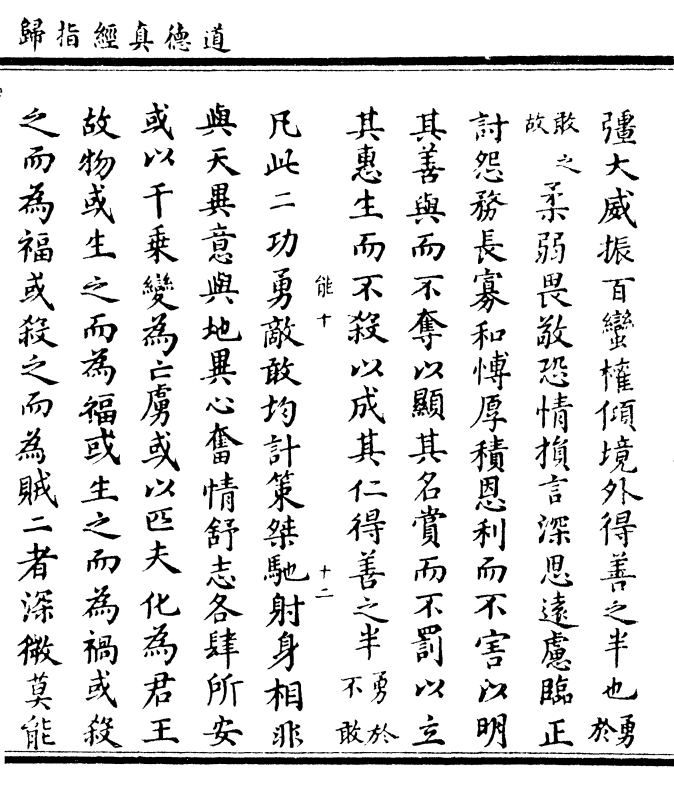 道德真經指歸
彊大威振百蠻權傾境外得善之半也勇於
敢之故柔弱畏敬恐情損言深思遠慮臨正
討怨務長寡和愽厚積恩利而不害以明
其善與而不奪以顯其名賞而不罰以立
其惠生而不殺以成其仁得善之半勇於不敢
能十 十二
凡此二功勇敵敢均計策桀馳射身相非
與天異意與地異心奮情舒志各肆所安
或以千乗變為亡虜或以匹夫化為君王
故物或生之而為福或生之而為禍或殺
之而為福或殺之而為賊二者深微莫能